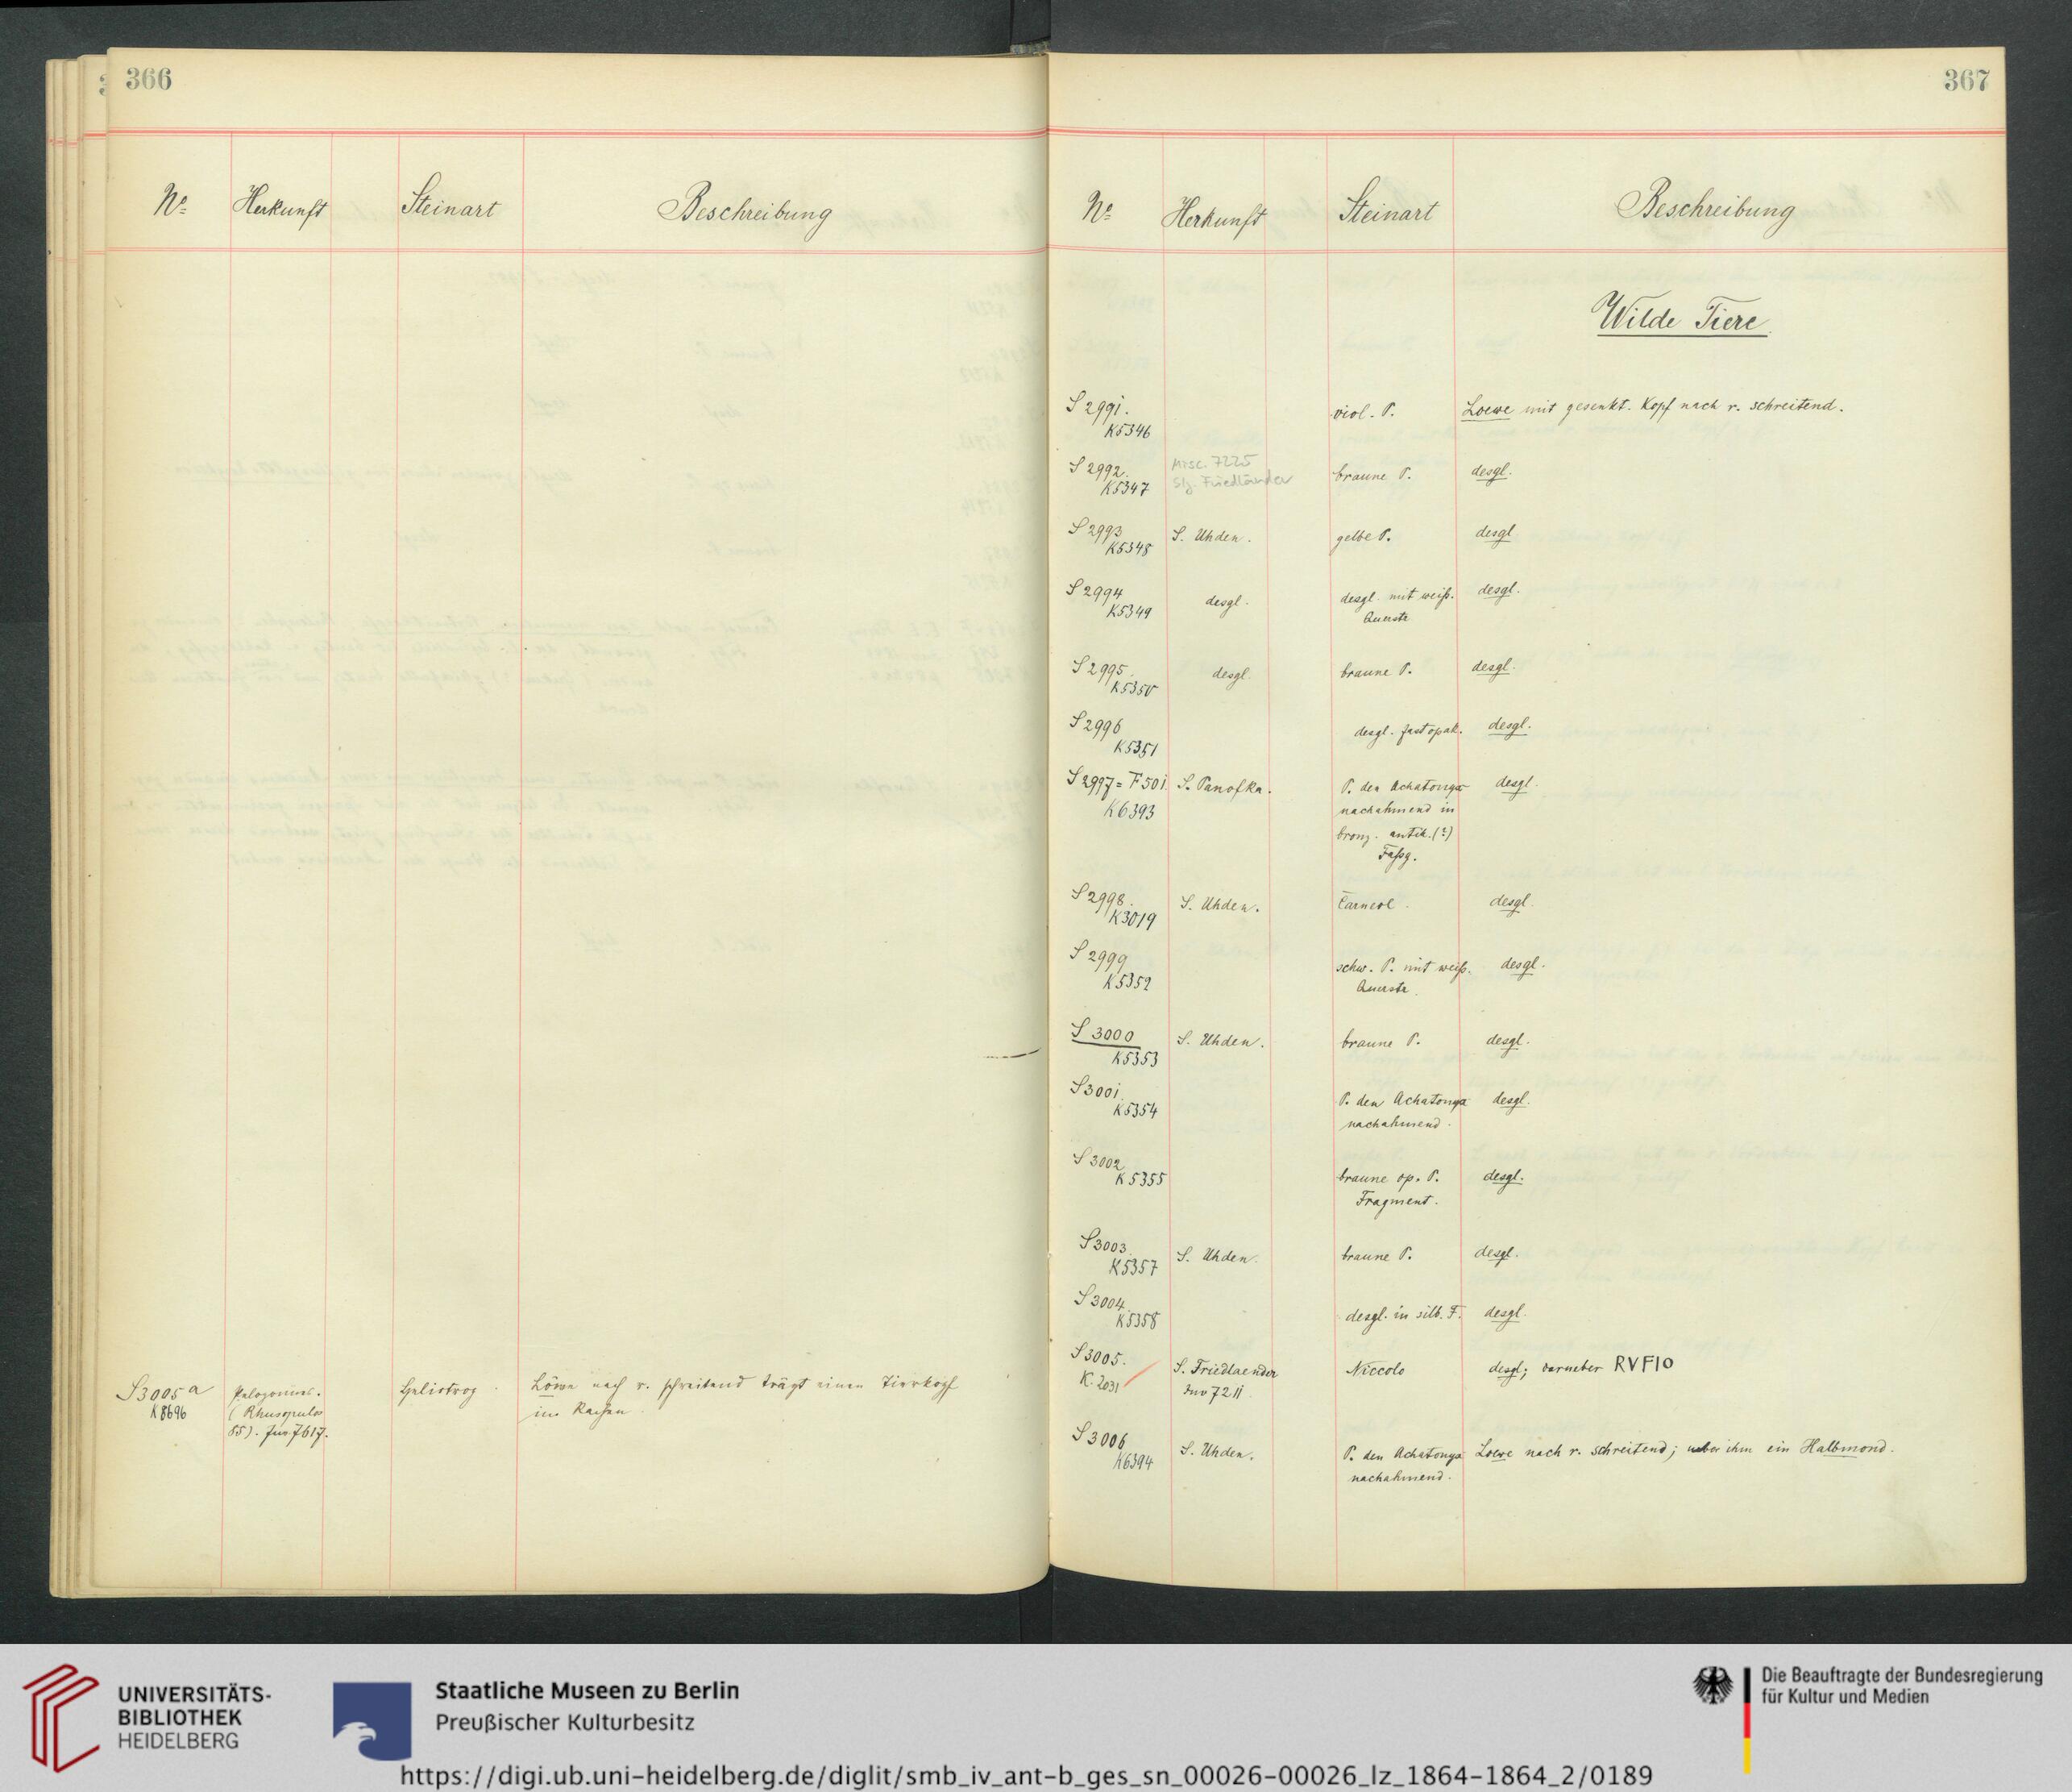 366
Nº Herkunft Steinart Beschreibung
S3005a Peloponnes. Heliotrop. Löwe nach r. schreitend trägt einen Tierkopf
K8696 (Rhusopulos im Rachen.
85). Inv. 7617.
367
Nº Herkunft Steinart Beschreibung
Wilde Tiere.
S 2991. viol. P. Loewe mit gesenkt. Kopf nach r. schreitend.
K5346
S 2992. Misc. 7225 braune P. desgl.
K5347 Slg. Friedländer
S 2993 S. Uhden. gelbe P. desgl
K5348
S 2994 desgl. desgl. mit weiß. desgl.
K5349 Querstr
S 2995. desgl. braune P. desgl.
K5350
S 2996 desgl. fast opak. desgl.
K5351
S 2997 = F501. S. Panofka. P. den Achatonyx desgl.
K6393 nachahmend in
bronz. antik. (?)
Faßg.
S 2998. S. Uhden. Carneol. desgl.
K3019
S 2999 schw. P. mit weiß. desgl.
K5352 Querstr.
S 3000 S. Uhden. braune P. desgl.
K5353
S3001. P. den Achatonyx desgl.
K5354 nachahmend.
S 3002 braune op. P. desgl.
K5355 Fragment.
S3003. S. Uhden. braune P. desgl.
K5357
S3004. desgl. in silb. F. desgl.
K5358
S3005. S. Friedlaender Niccolo desgl; darueber RVFIO
K. 2031 Inv 7211.
S3006 S. Uhden. P. den Achatonyx Loewe nach r. schreitend; ueber ihm ein Halbmond.
K6394 nachahmend.
UNIVERSITÄTS-
BIBLIOTHEK
HEIDELBERG
Staatliche Museen zu Berlin
Preußischer Kulturbesitz
Die Beauftragte der Bundesregierung
für Kultur und Medien
https://digi.ub.uni-heidelberg.de/diglit/smb_iv_ant-b_ges_sn_00026-00026_lz_1864-1864_2/0189